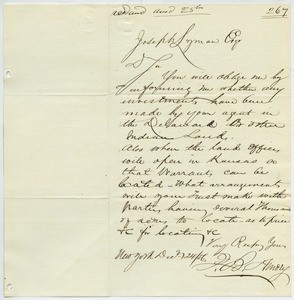 267
Joseph Lyman Esq
You will oblige me by
informing me whether any
investments have been
made by your agent in
the Delaware or other
Indian Land.
Also when the land offices
will open in Kansas so
that Warrants can be
located. What arrangements
will your Trust make with
Parties having several Thous
of acres to locate as to price
&c for locating &c
Very Respy Yours
New York Dec